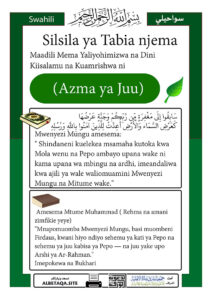 Swahili
سواحيلي
Silsila ya Tabia njema
Maadili Mema Yaliyohimizwa na Dini
Kiisalamu na Kuamrishwa ni
(Azma ya Juu)
سَابِقُوا إِلَى مَغْفِرَةٍ مِنْ رَبِّكُمْ وَجَنَّةٍ عَرْضُهَا
كَعَرْضِ السَّمَاءِ وَالْأَرْضِ أُعِدَّتْ لِلَّذِينَ آمَنُوا بِاللَّهِ وَرُسُلِهِ
Mwenyezi Mungu amesema:
" Shindaneni kuelekea msamaha kutoka kwa
Mola wenu na Pepo ambayo upana wake ni
kama upana wa mbingu na ardhi, imeandaliwa
kwa ajili ya wale waliomuamini Mwenyezi
Mungu na Mitume wake."
Amesema Mtume Muhammad ( Rehma na amani
zimfikie yeye)
"Mnapomuomba Mwenyezi Mungu, basi muombeni
Firdaus, kwani hiyo ndiyo sehemu ya kati ya Pepo na
sehemu ya juu kabisa ya Pepo — na juu yake upo
Arshi ya Ar-Rahman."
Imepokewa na Bukhari
ALBETAQA.SITE